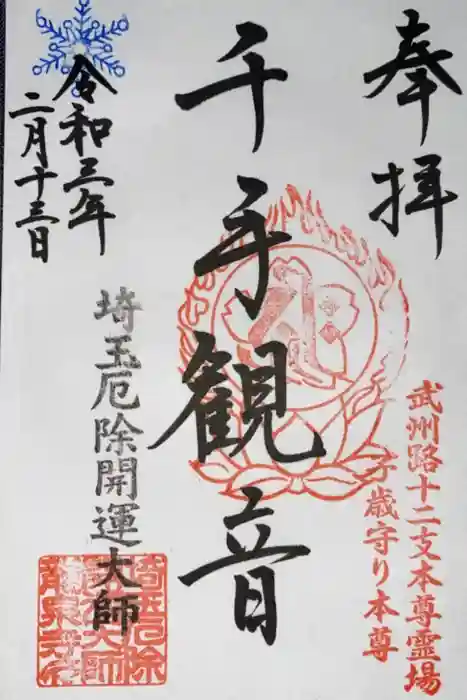 奉拝
武州路十二支本尊霊場
子歳守り本尊
千手観音
埼玉厄除開運大師
令和三年
二月十三日